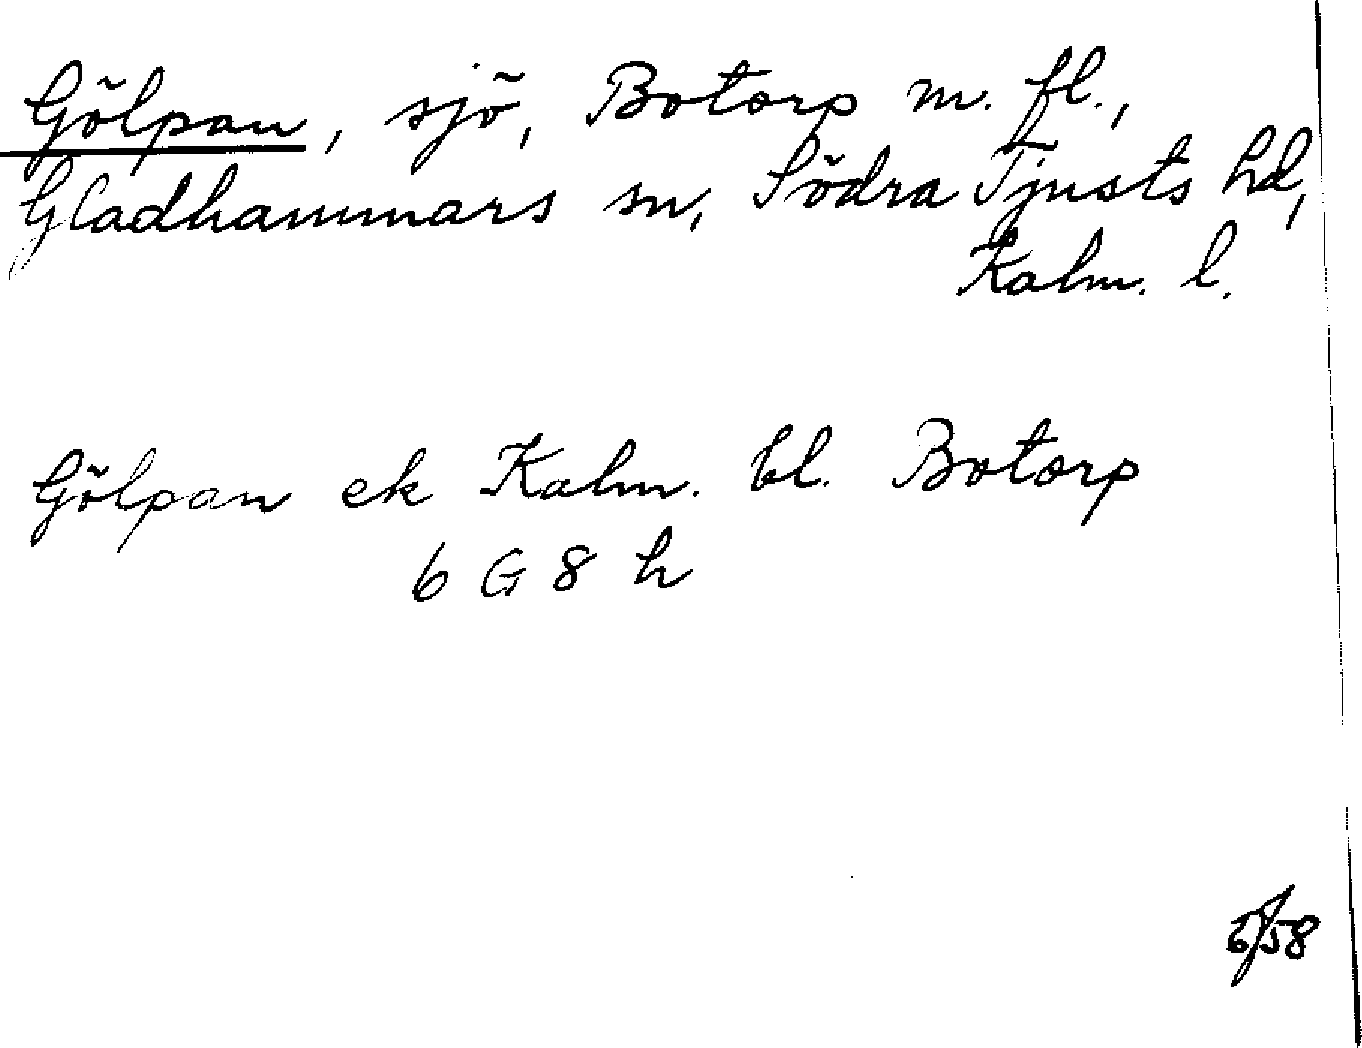 Gölpan, sjö, Botorp m. fl.,
Gladhammars sn, Södra Tjusts hd,
Kalm. l.
Gölpan ek Kalm. bl. Botorp
6 G 8 h
6/58